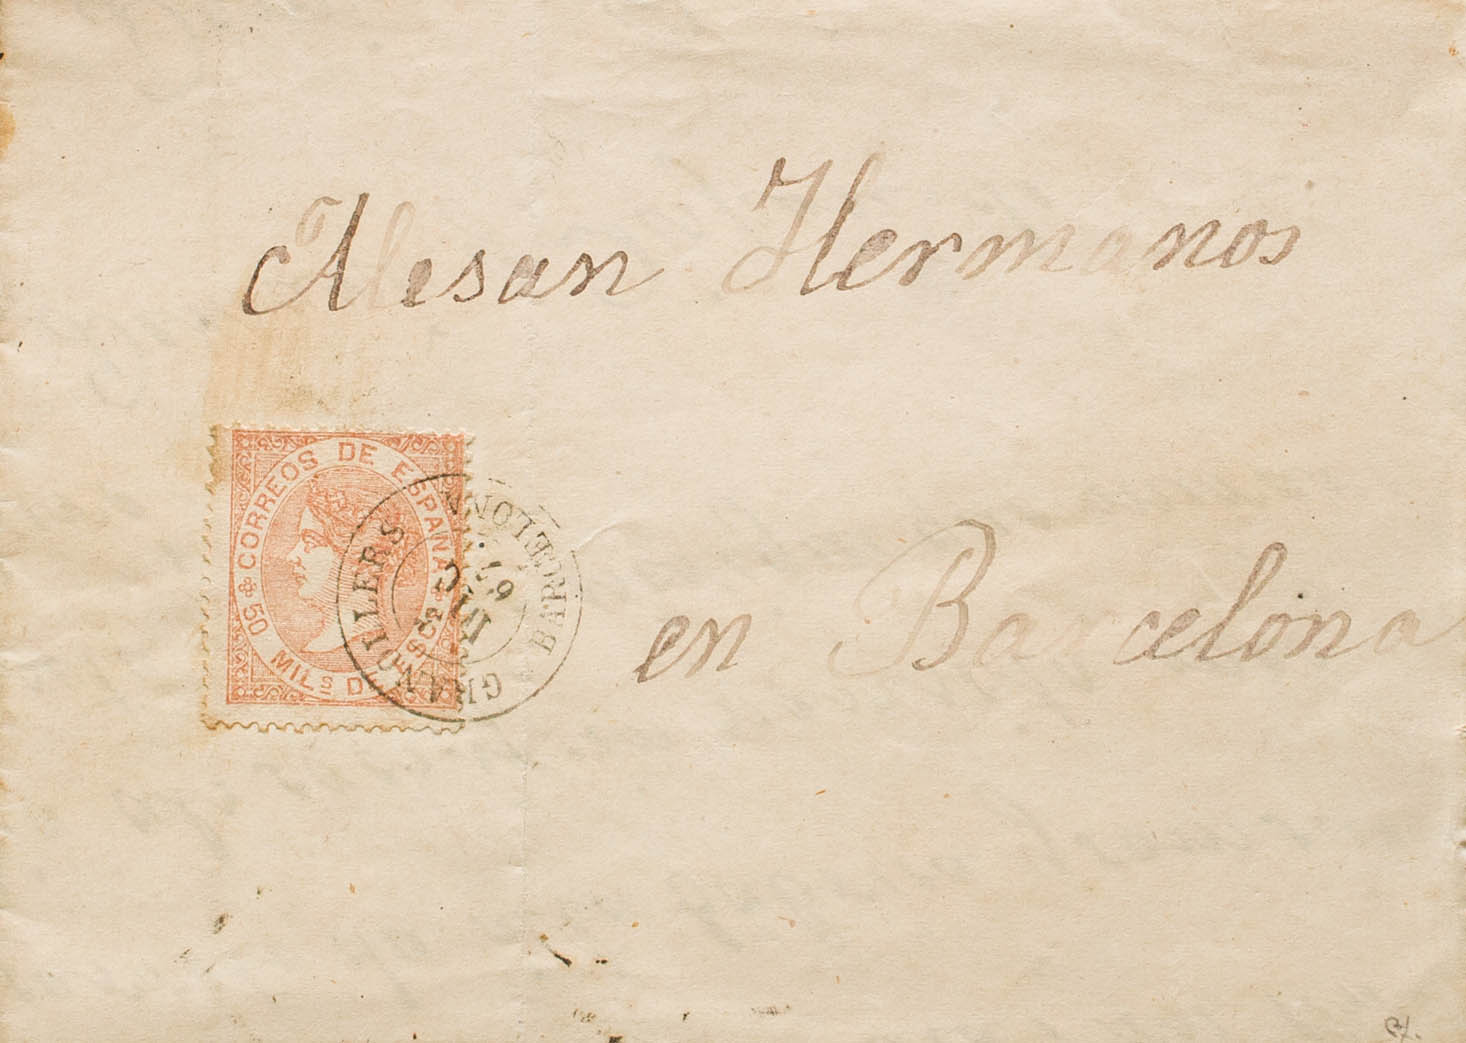 Alesan Hermanos
en Barcelona
CORREOS DE ESPAÑA
50 MILS DE ESCo
GRANOLLERS
BARCELONA
DIC
67